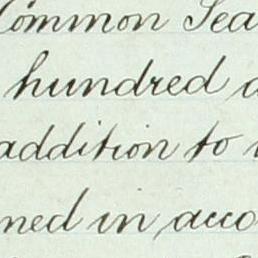 Common Sea
hundred a
addition to
ned in acco